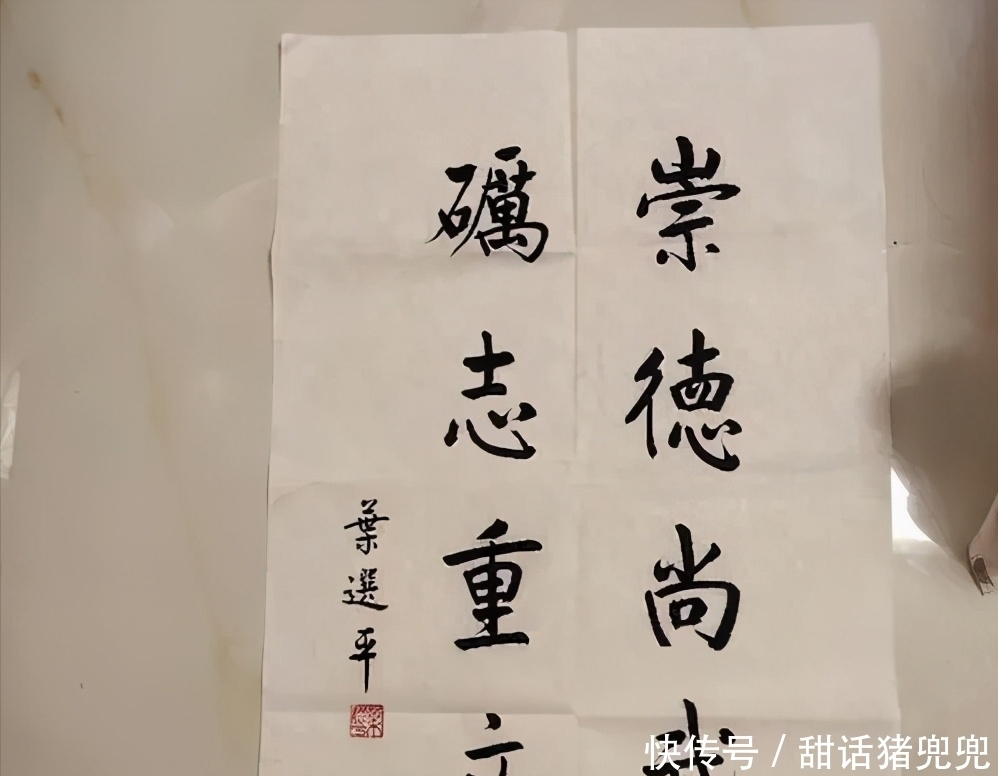 崇德尚
礪志重
葉選平
快传号 / 甜话猪兜兜